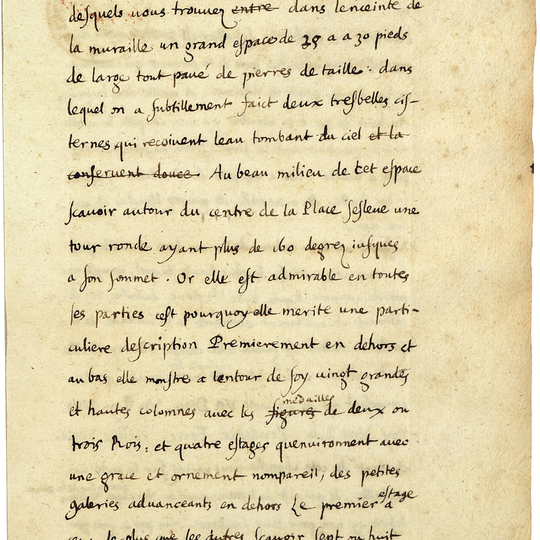 desquels vous trouvez entre dans lenceinte de
la muraille un grand espace de 25 a a 30 pieds
de large tout pavé de pierres de taille: dans
lequel on a subtillement faict deux tresbelles cis-
ternes qui recoivent leau tombant du ciel et la
conservent douce. Au beau milieu de cet espace
scavoir autour du centre de la Place sesleve une
tour ronde ayant plus de 160 degrez iusques
a son sommet. Or elle est admirable en toutes
ses parties cest pourquoy elle merite une parti-
culiere description Premierement en dehors et
au bas elle monstre a lentour de soy vingt grandes
et hautes colomnes avec les figures medailles de deux ou
trois Rois; et quatre estages quenvironnent avec
une grace et ornement nompareil; des petites
galeries advanceants en dehors Le premier estage a
le plus que les autres scavoir sept ou huit